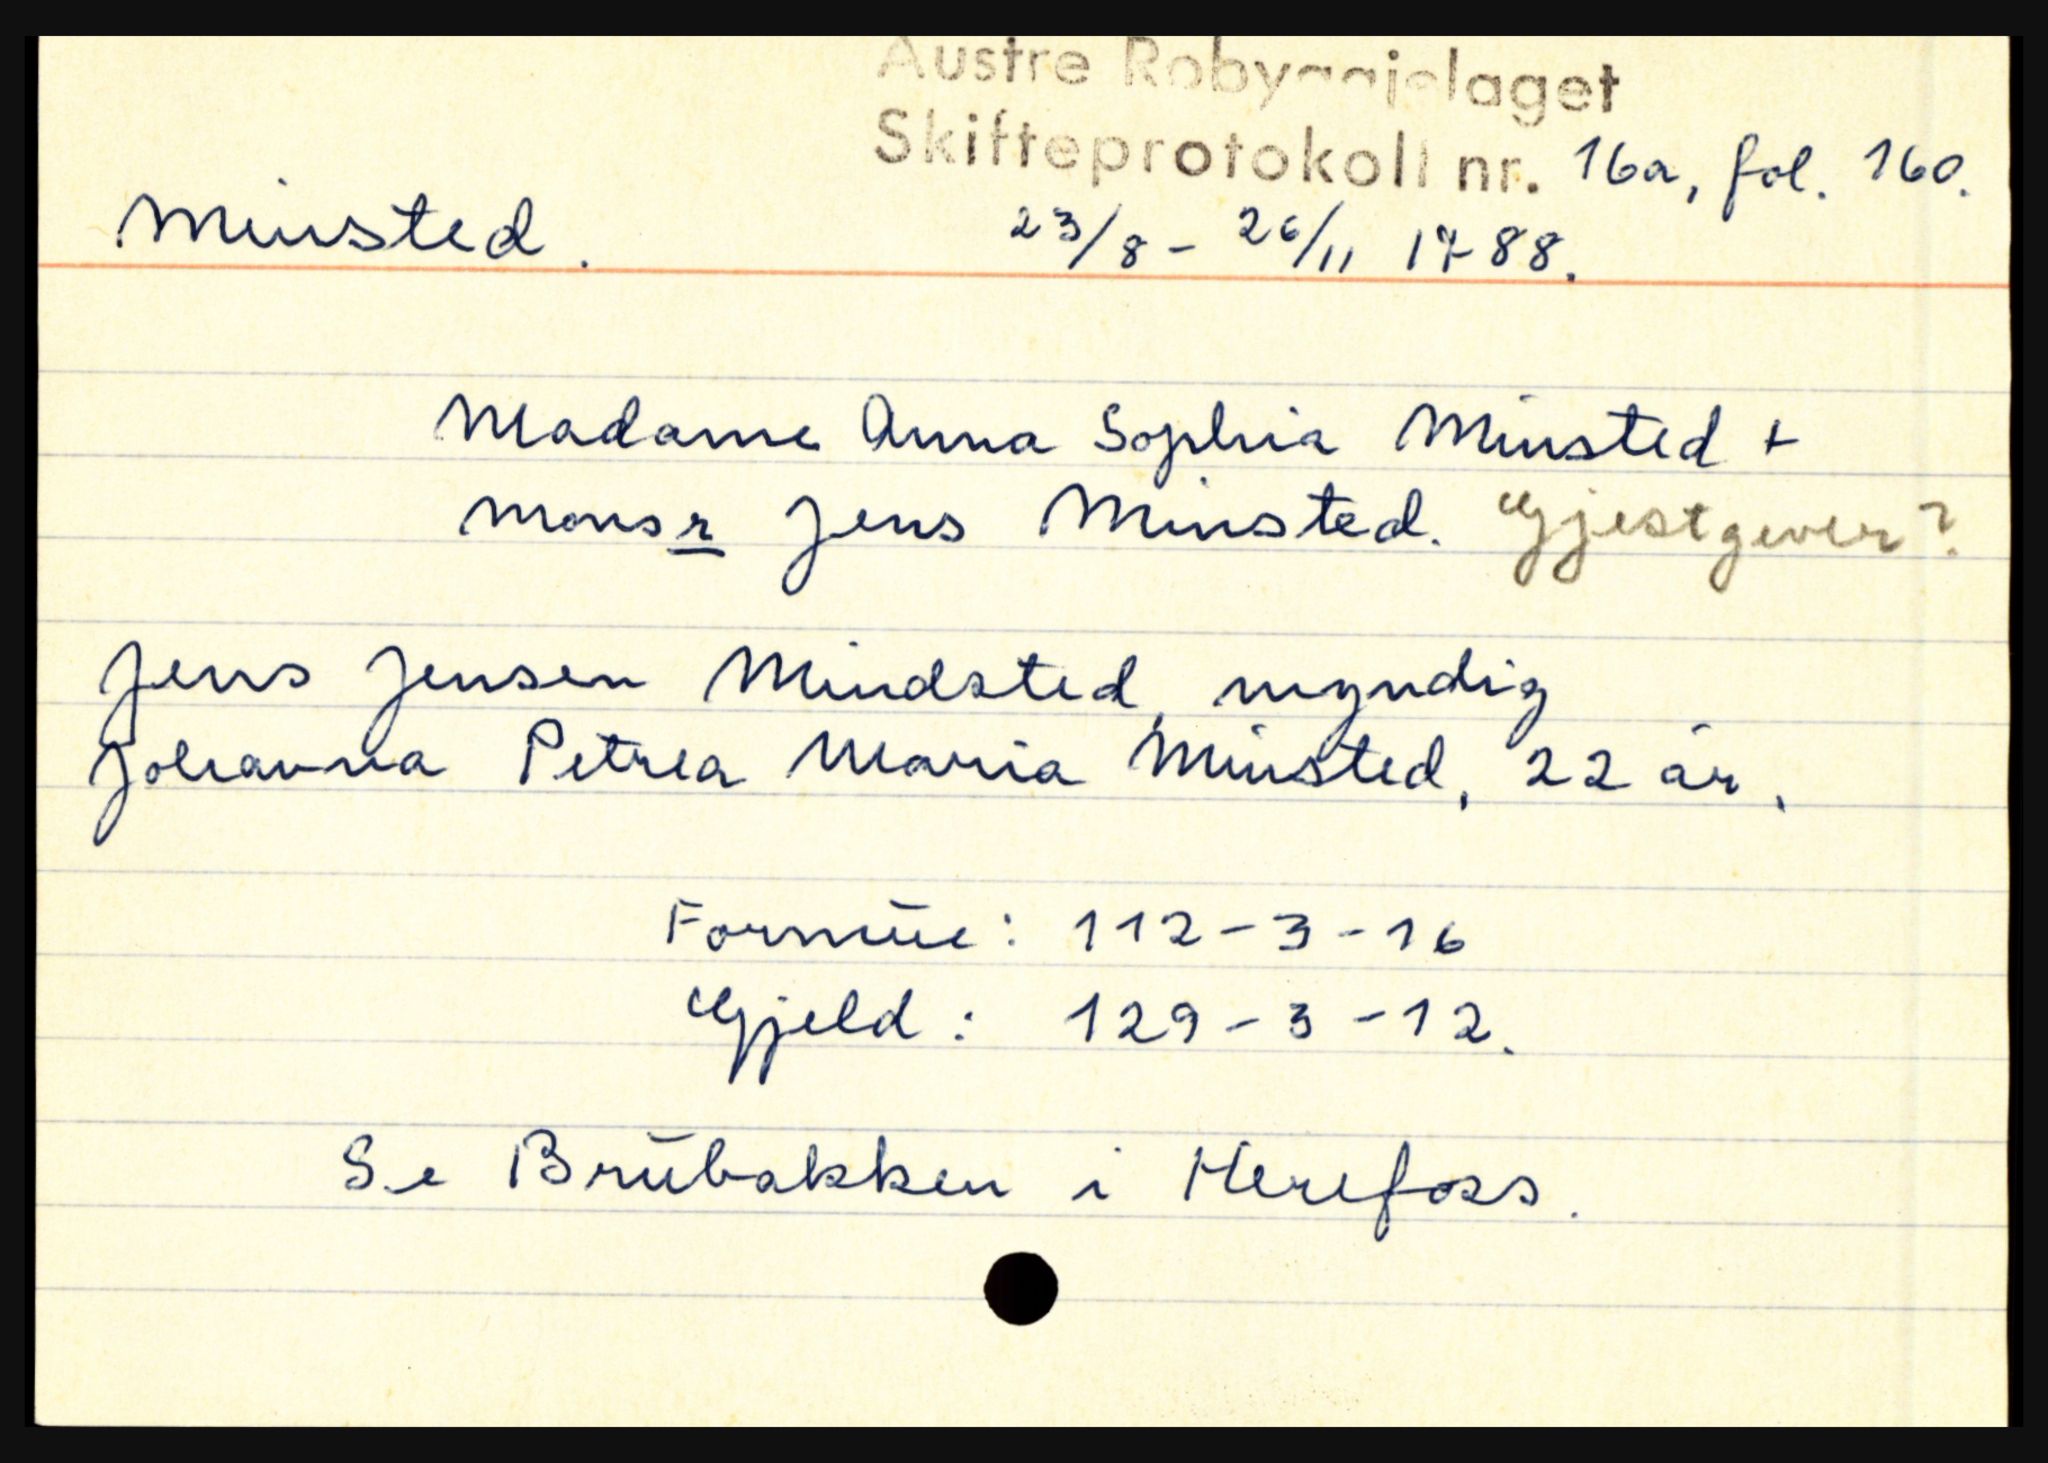 Austre Robyggjelaget
Skifteprotokoll nr. 16a, fol. 160.
Minsted. 23/8 - 26/11 1788.
Madame Anna Sophia Minsted +
Monsr Jens Minsted. Gjestgever?
Jens Jensen Mindsted, myndig
Johanna Petrea Maria Minsted, 22 år.
Formue: 112-3-16
Gjeld: 129-3-12.
Se Brubakken i Herefoss.